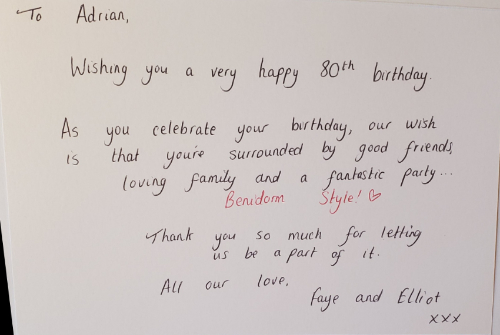 To Adrian,
Wishing you a very happy 80th birthday.
As you celebrate your birthday, our wish
is that you're surrounded by good friends,
loving family and a fantastic party...
Benidorm Style! ♡
Thank you so much for letting
us be a part of it.
All our love,
Faye and Elliot
xxx